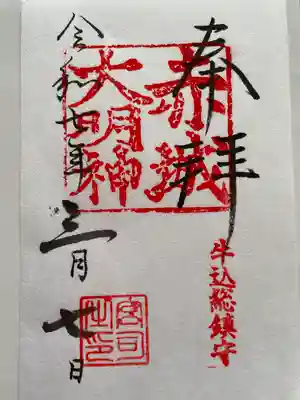 奉拝
赤城
大明神
牛込総鎮守
宮司之印
令和七年三月七日